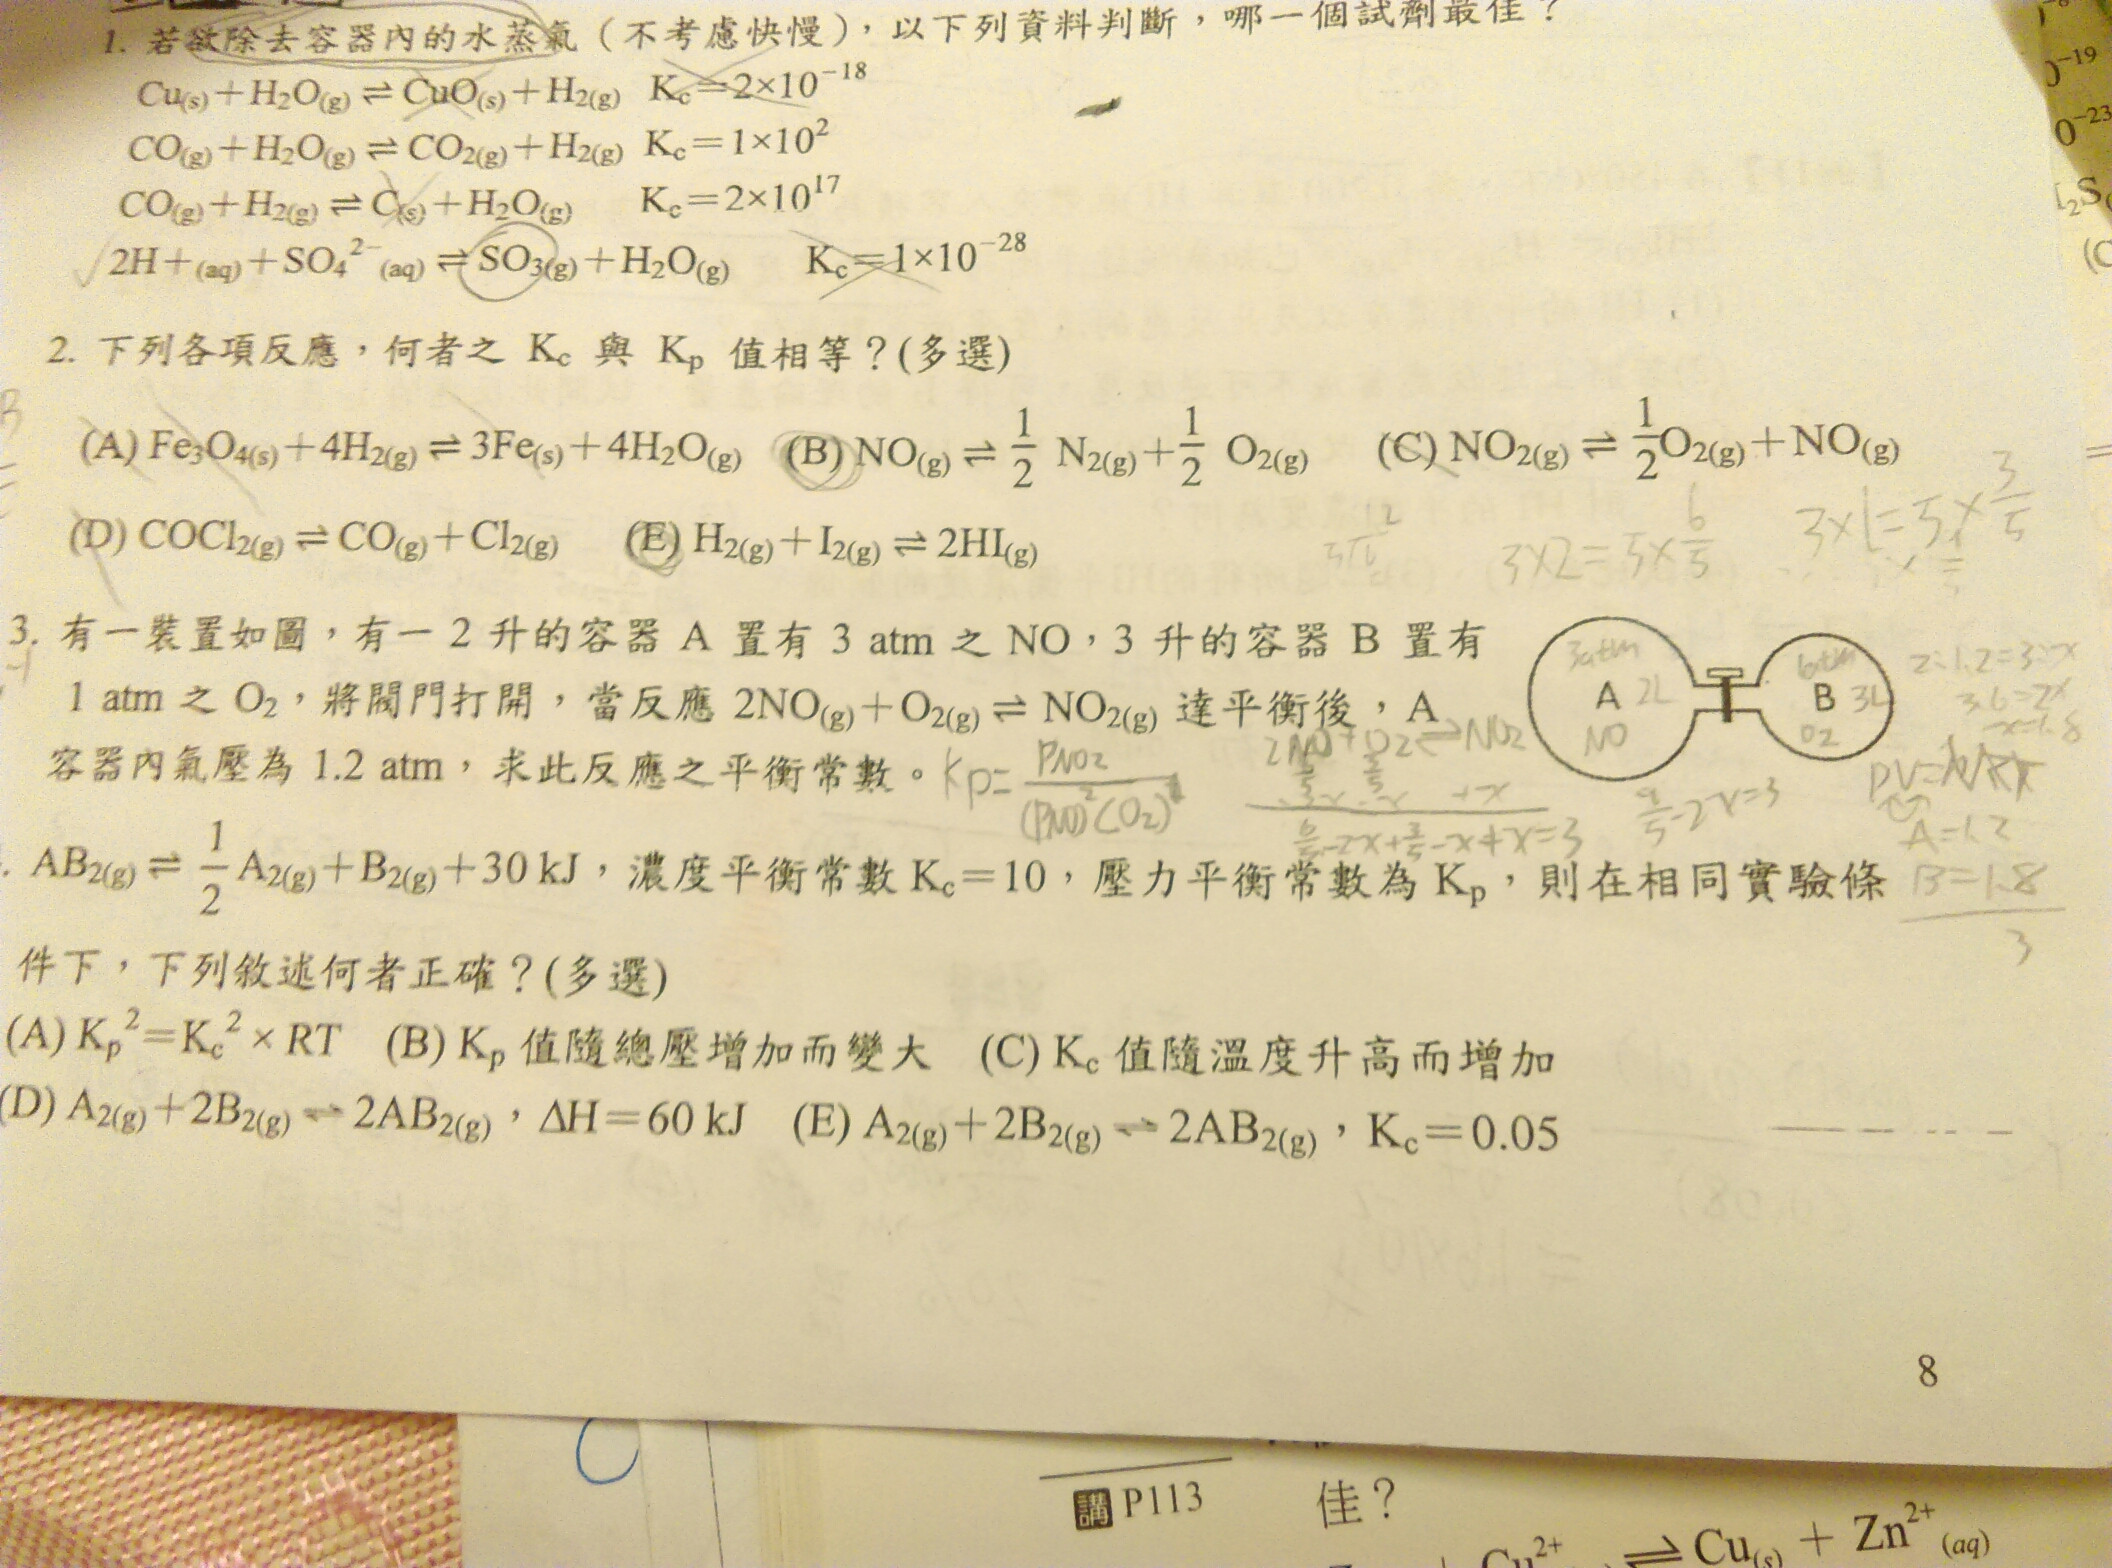 1. 若欲除去容器內的水蒸氣（不考慮快慢），以下列資料判斷，哪一個試劑最佳？
Cu(s)+H2O(g)⇌CuO(s)+H2(g) Kc=2×10^-18
CO(g)+H2O(g)⇌CO2(g)+H2(g) Kc=1×10^2
CO(g)+H2(g)⇌C(s)+H2O(g) Kc=2×10^17
2H+(aq)+SO4^2-(aq)⇌SO3(g)+H2O(g) Kc=1×10^-28
2. 下列各項反應，何者之 Kc 與 Kp 值相等？(多選)
(A) Fe3O4(s)+4H2(g)⇌3Fe(s)+4H2O(g) (B) NO(g)⇌1/2 N2(g)+1/2 O2(g) (C) NO2(g)⇌1/2O2(g)+NO(g)
(D) COCl2(g)⇌CO(g)+Cl2(g) (E) H2(g)+I2(g)⇌2HI(g)
3×2=5×6/5
3×1=5×3/5
3. 有一裝置如圖，有一 2 升的容器 A 置有 3 atm 之 NO，3 升的容器 B 置有
1 atm 之 O2，將閥門打開，當反應 2NO(g)+O2(g)⇌NO2(g) 達平衡後，A
容器內氣壓為 1.2 atm，求此反應之平衡常數。
3atm
A 2L
NO
6atm
B 3L
O2
2:1.2=3:x
3.6=2x
x=1.8
Kp=PNO2/(PNO)^2(O2)
2NO+O2⇌NO2
+x
9/5-2x=3
A=1.2
B=1.8
3
. AB2(g)⇌1/2 A2(g)+B2(g)+30 kJ，濃度平衡常數 Kc=10，壓力平衡常數為 Kp，則在相同實驗條
件下，下列敘述何者正確？(多選)
(A) Kp^2=Kc^2×RT (B) Kp 值隨總壓增加而變大 (C) Kc 值隨溫度升高而增加
(D) A2(g)+2B2(g)⇌2AB2(g)，ΔH=60 kJ (E) A2(g)+2B2(g)⇌2AB2(g)，Kc=0.05
8
講 P113
佳？
Cu2+ ⇌ Cu(s) + Zn2+(aq)